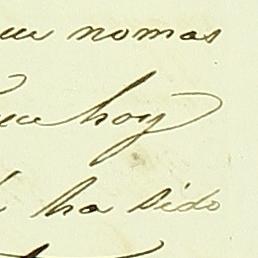 nomas
que hoy
ha sido